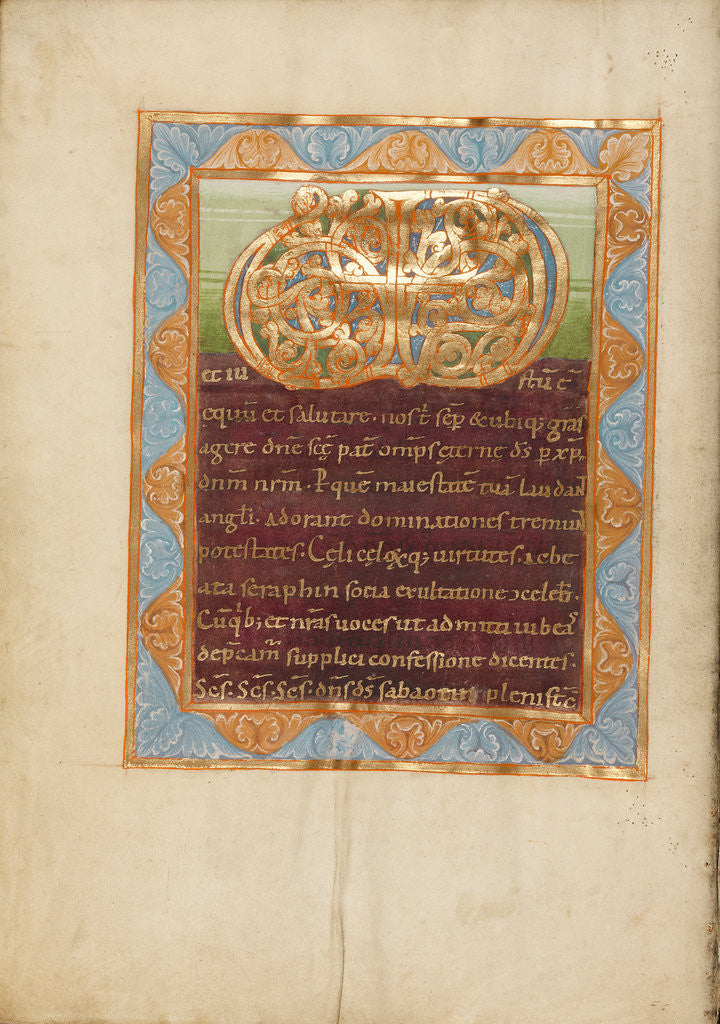 et iu stū ē
ęquū et salutare. nos t̄ sēp & ubiq; grās
agere dn̄e sc̄ę pat̄ omp̄s ęterne d̄s p xp̄m
dnm̄ nrm̄. P quē maiestatē tuā laudan̄t
angli. Adorant dominationes tremun̄t
potestates. Cęli cęloꝝq; uirtutes. Ac be
ata seraphin socia exultatione ↄcelebr̄.
Cū qb; et nrās uoces ut admitti iubeas
dep̄camr̄ supplici confessione dicentes.
Sc̄s. Sc̄s. Sc̄s. dn̄s d̄s sabaoth pleni st̄ c